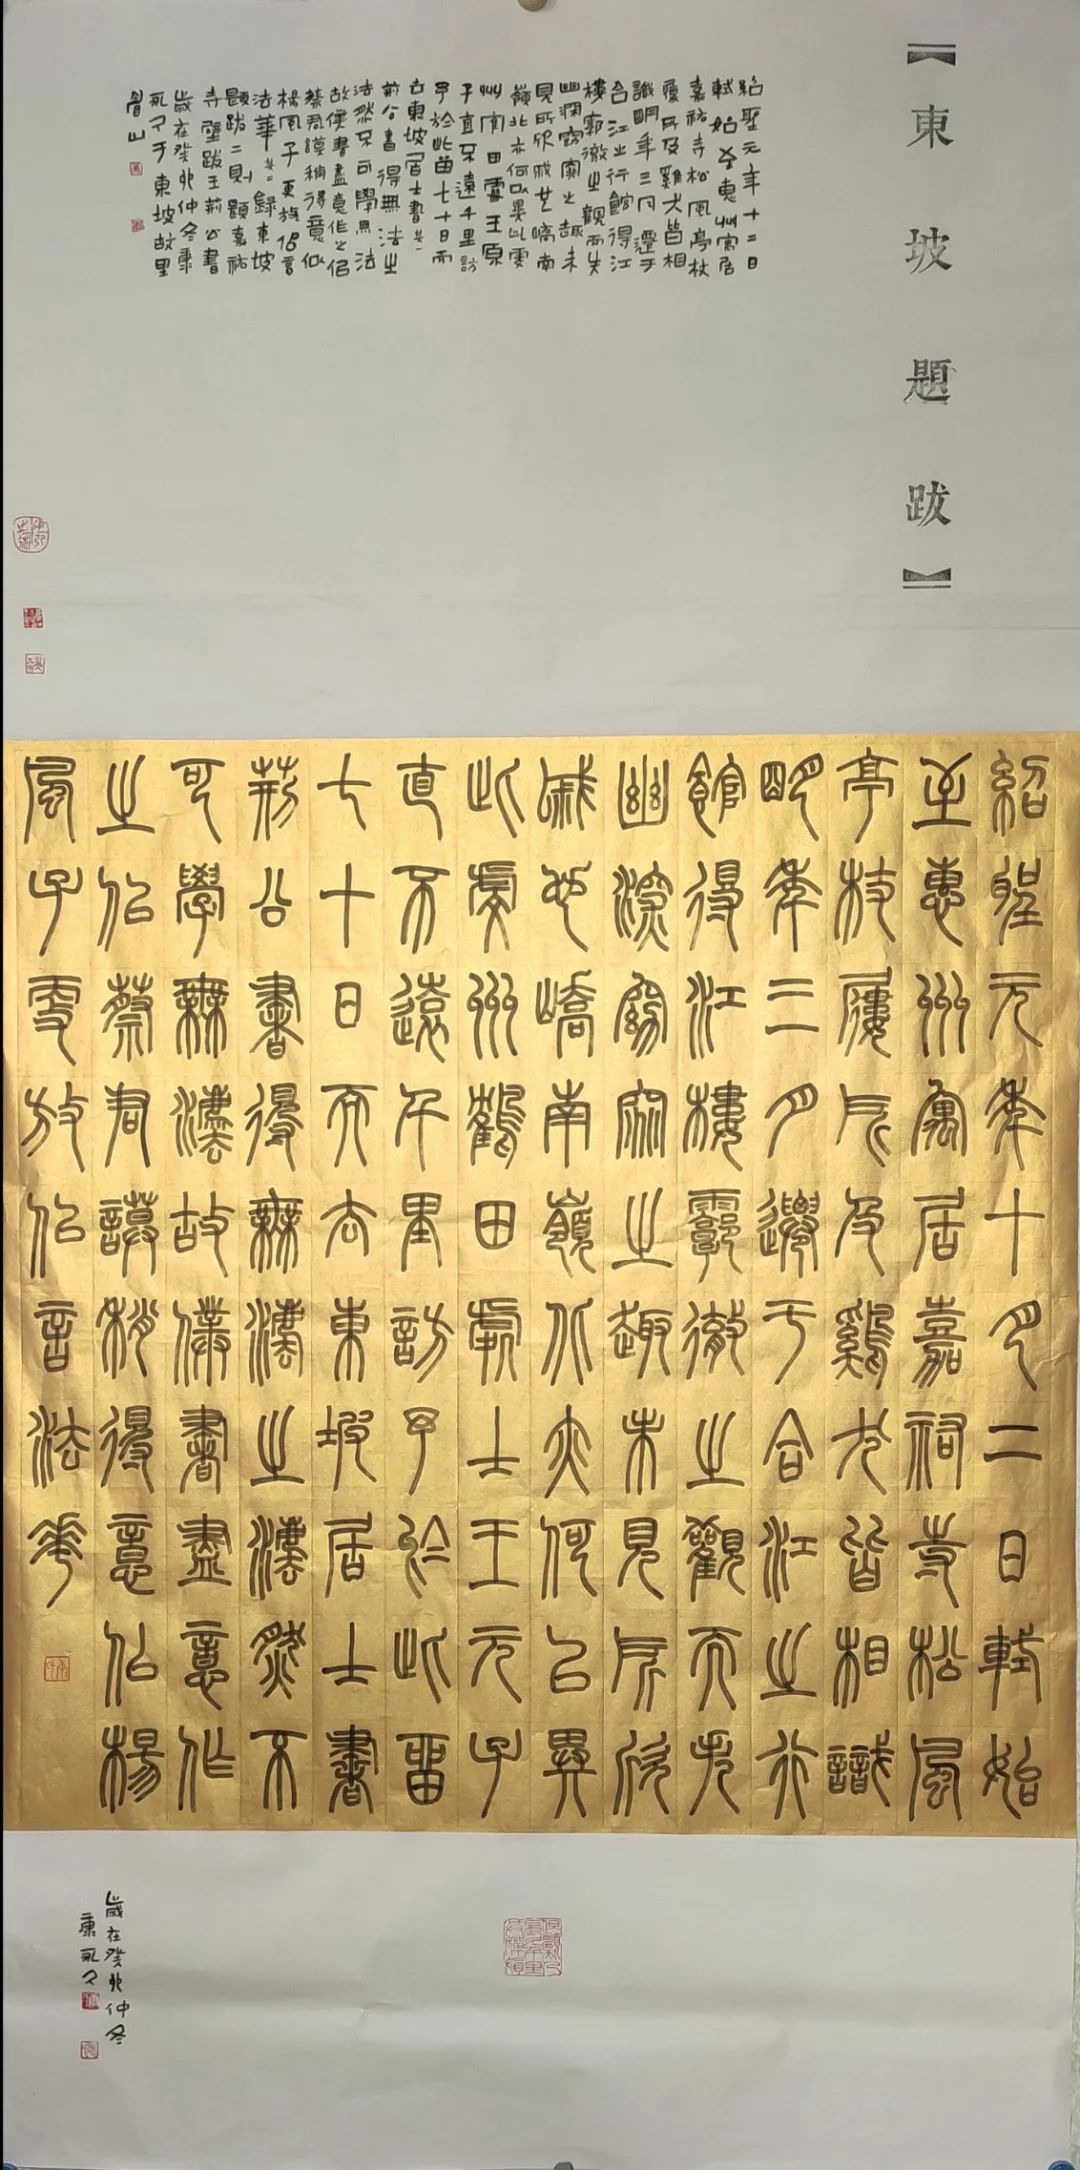 【東坡題跋】
紹聖元年十二日
軾始至惠州寓居
嘉祐寺松風亭杖
屨所及雞犬皆相
識明年三月遷于
合江之行館得江
樓廓徹之觀而失
幽深窈窕之趣未
見所欣戚也嶠南
嶺北亦何以異此虔
州田處王原
子直不遠千里訪
予於此留七十日而
去東坡居士書其一
荊公書得無法之
法然不可學無法
故僕書盡意作之似
蔡君謨稍得意似
楊風子更放似言
法華其二錄東坡
題跋二則題嘉祐
寺壁跋王荊公書
歲在癸卯仲冬康
永〃于東坡故里
眉山
紹聖元年十月二日軾始
至惠州寓居嘉祠寺松風
亭杖屨所及雞犬皆相識
明年三月遷于合江之行
館得江樓廓徹之觀而失
幽深窈窕之趣未見所欣
戚也嶠南嶺北亦何以異
此虔州鶴田處士王元子
直不遠千里訪予於此留
七十日而去東坡居士書
荊公書得無法之法然不
可學無法故僕書盡意作
之似蔡君謨稍得意似楊
風子更放似言法華
歲在癸卯仲冬
康永〃